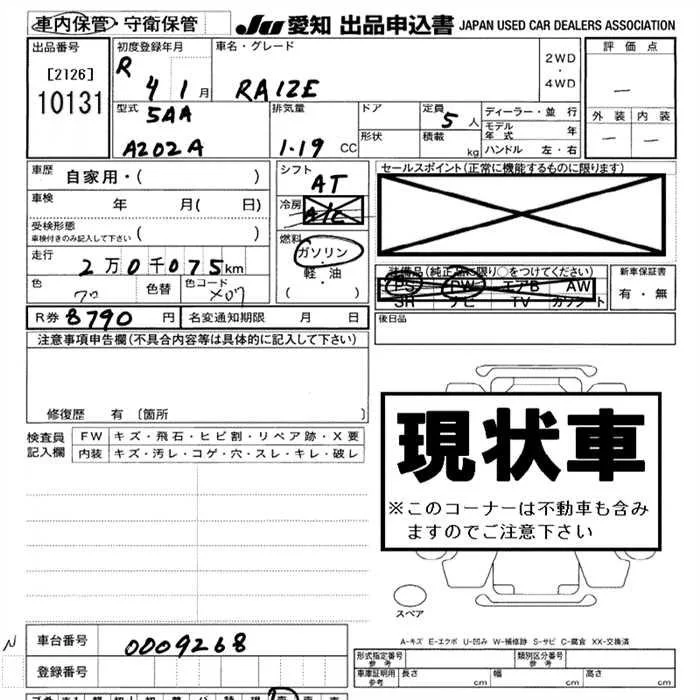 車内保管・守衛保管 JU 愛知 出品申込書 JAPAN USED CAR DEALERS ASSOCIATION
出品番号 初度登録年月 車名・グレード 評価点
[2126] R 2WD
10131 4 1月 RAIZE ・
4WD
型式 排気量 ドア 定員 ディーラー・並行 外装 内装
5AA 5人 モデル年式 年
A202A 1.19 CC 形状 積載 kg ハンドル 左・右
車歴 自家用・( ) シフト AT セールスポイント(正常に機能するものに限ります)
車検 年 月( 日) 冷房 A/C
受検形態 ( )
車検付きのみ記入して下さい
燃料
走行 2万0千075km ガソリン 装備品(純正品に限り○をつけてください) 新車保証書
軽・油 PS PW エアB AW 有・無
色 クロ 色替 色コード ( ) SR ナビ TV カワシート
R券 8790 円 名変通知期限 月 日 後日品
注意事項申告欄(不具合内容等は具体的に記入して下さい)
修復歴 有 [箇所 ]
現状車
※このコーナーは不動車も含み
ますのでご注意下さい
検査員 FW キズ・飛石・ヒビ割・リペア跡・X要
記入欄 内装 キズ・汚レ・コゲ・穴・スレ・キレ・破レ
スペア
A-キズ E-エクボ U-凹み W-補修跡 S-サビ C-腐食 XX-交換済
N 車台番号 0009268
形式指定番号 参考 類別区分番号 参考
登録番号 車庫証明用 参考 長さ cm 幅 cm 高さ cm